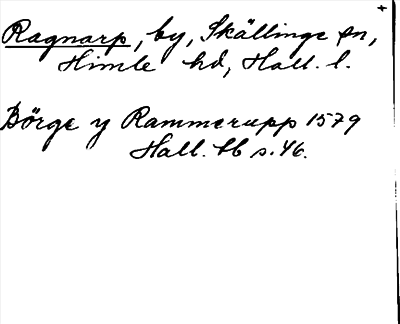 +
Ragnarp, by, Skällinge sn,
Himle hd, Hall. l.
Börge y Rammerupp 1579
Hall. tb s. 46.